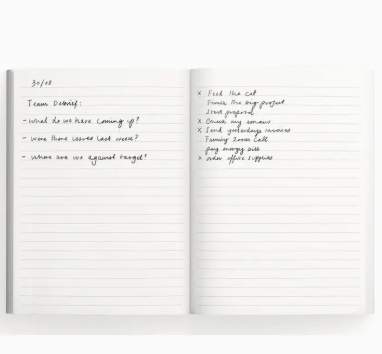 30/08
Team Debrief:
- What do we have coming up?
- were there issues last week?
- Where are we against target?
x Feed the cat
Finish the big project
Start proposal
x Check my emails
x Send yesterdays invoices
Family zoom call
pay energy bill
x order office supplies